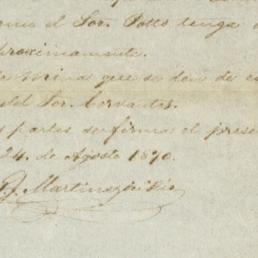 como el Sor. Potts tenga
proximamente.
la mina que se den de
del Sor. Cervantes.
partes se firma el prese
24. de Agosto 1870.
J. Martinez del Rio